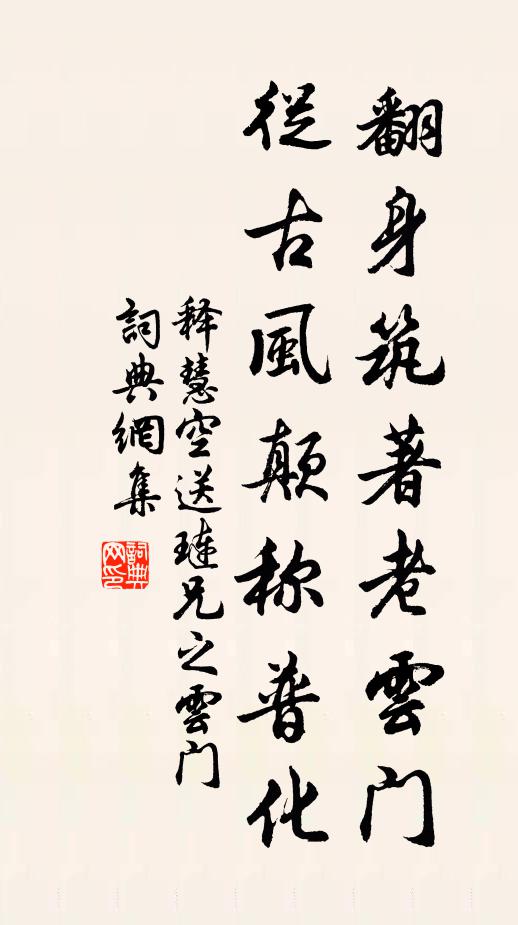 翻身筑著老雲门
從古風颠称普化
释慧空送璉兄之雲门
詞典網集
詞典网印